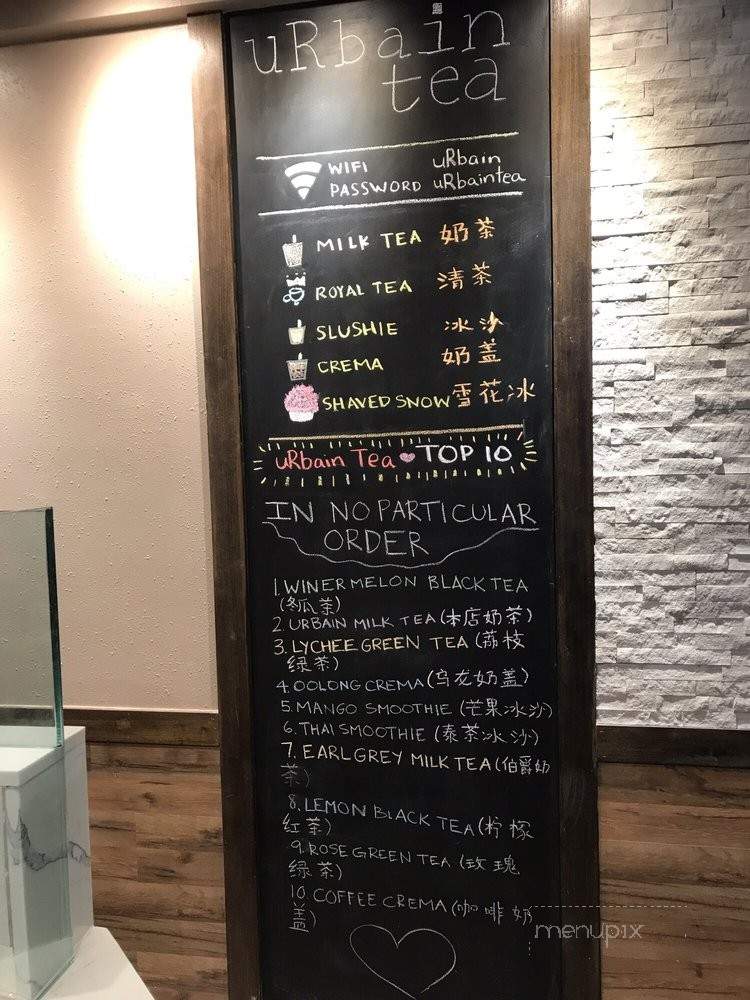 uRbain
tea
WIFI uRbain
PASSWORD uRbaintea
MILK TEA 奶茶
ROYAL TEA 清茶
SLUSHIE 冰沙
CREMA 奶盖
SHAVED SNOW 雪花冰
uRbain Tea TOP 10
IN NO PARTICULAR
ORDER
1. WINERMELON BLACK TEA
(冬瓜茶)
2. URBAIN MILK TEA (本店奶茶)
3. LYCHEE GREEN TEA (荔枝
绿茶)
4. OOLONG CREMA (乌龙奶盖)
5. MANGO SMOOTHIE (芒果冰沙)
6. THAI SMOOTHIE (泰茶冰沙)
7. EARL GREY MILK TEA (伯爵奶
茶)
8. LEMON BLACK TEA (柠檬
红茶)
9. ROSE GREEN TEA (玫瑰
绿茶)
10 COFFEE CREMA (咖啡奶
盖)
menupix